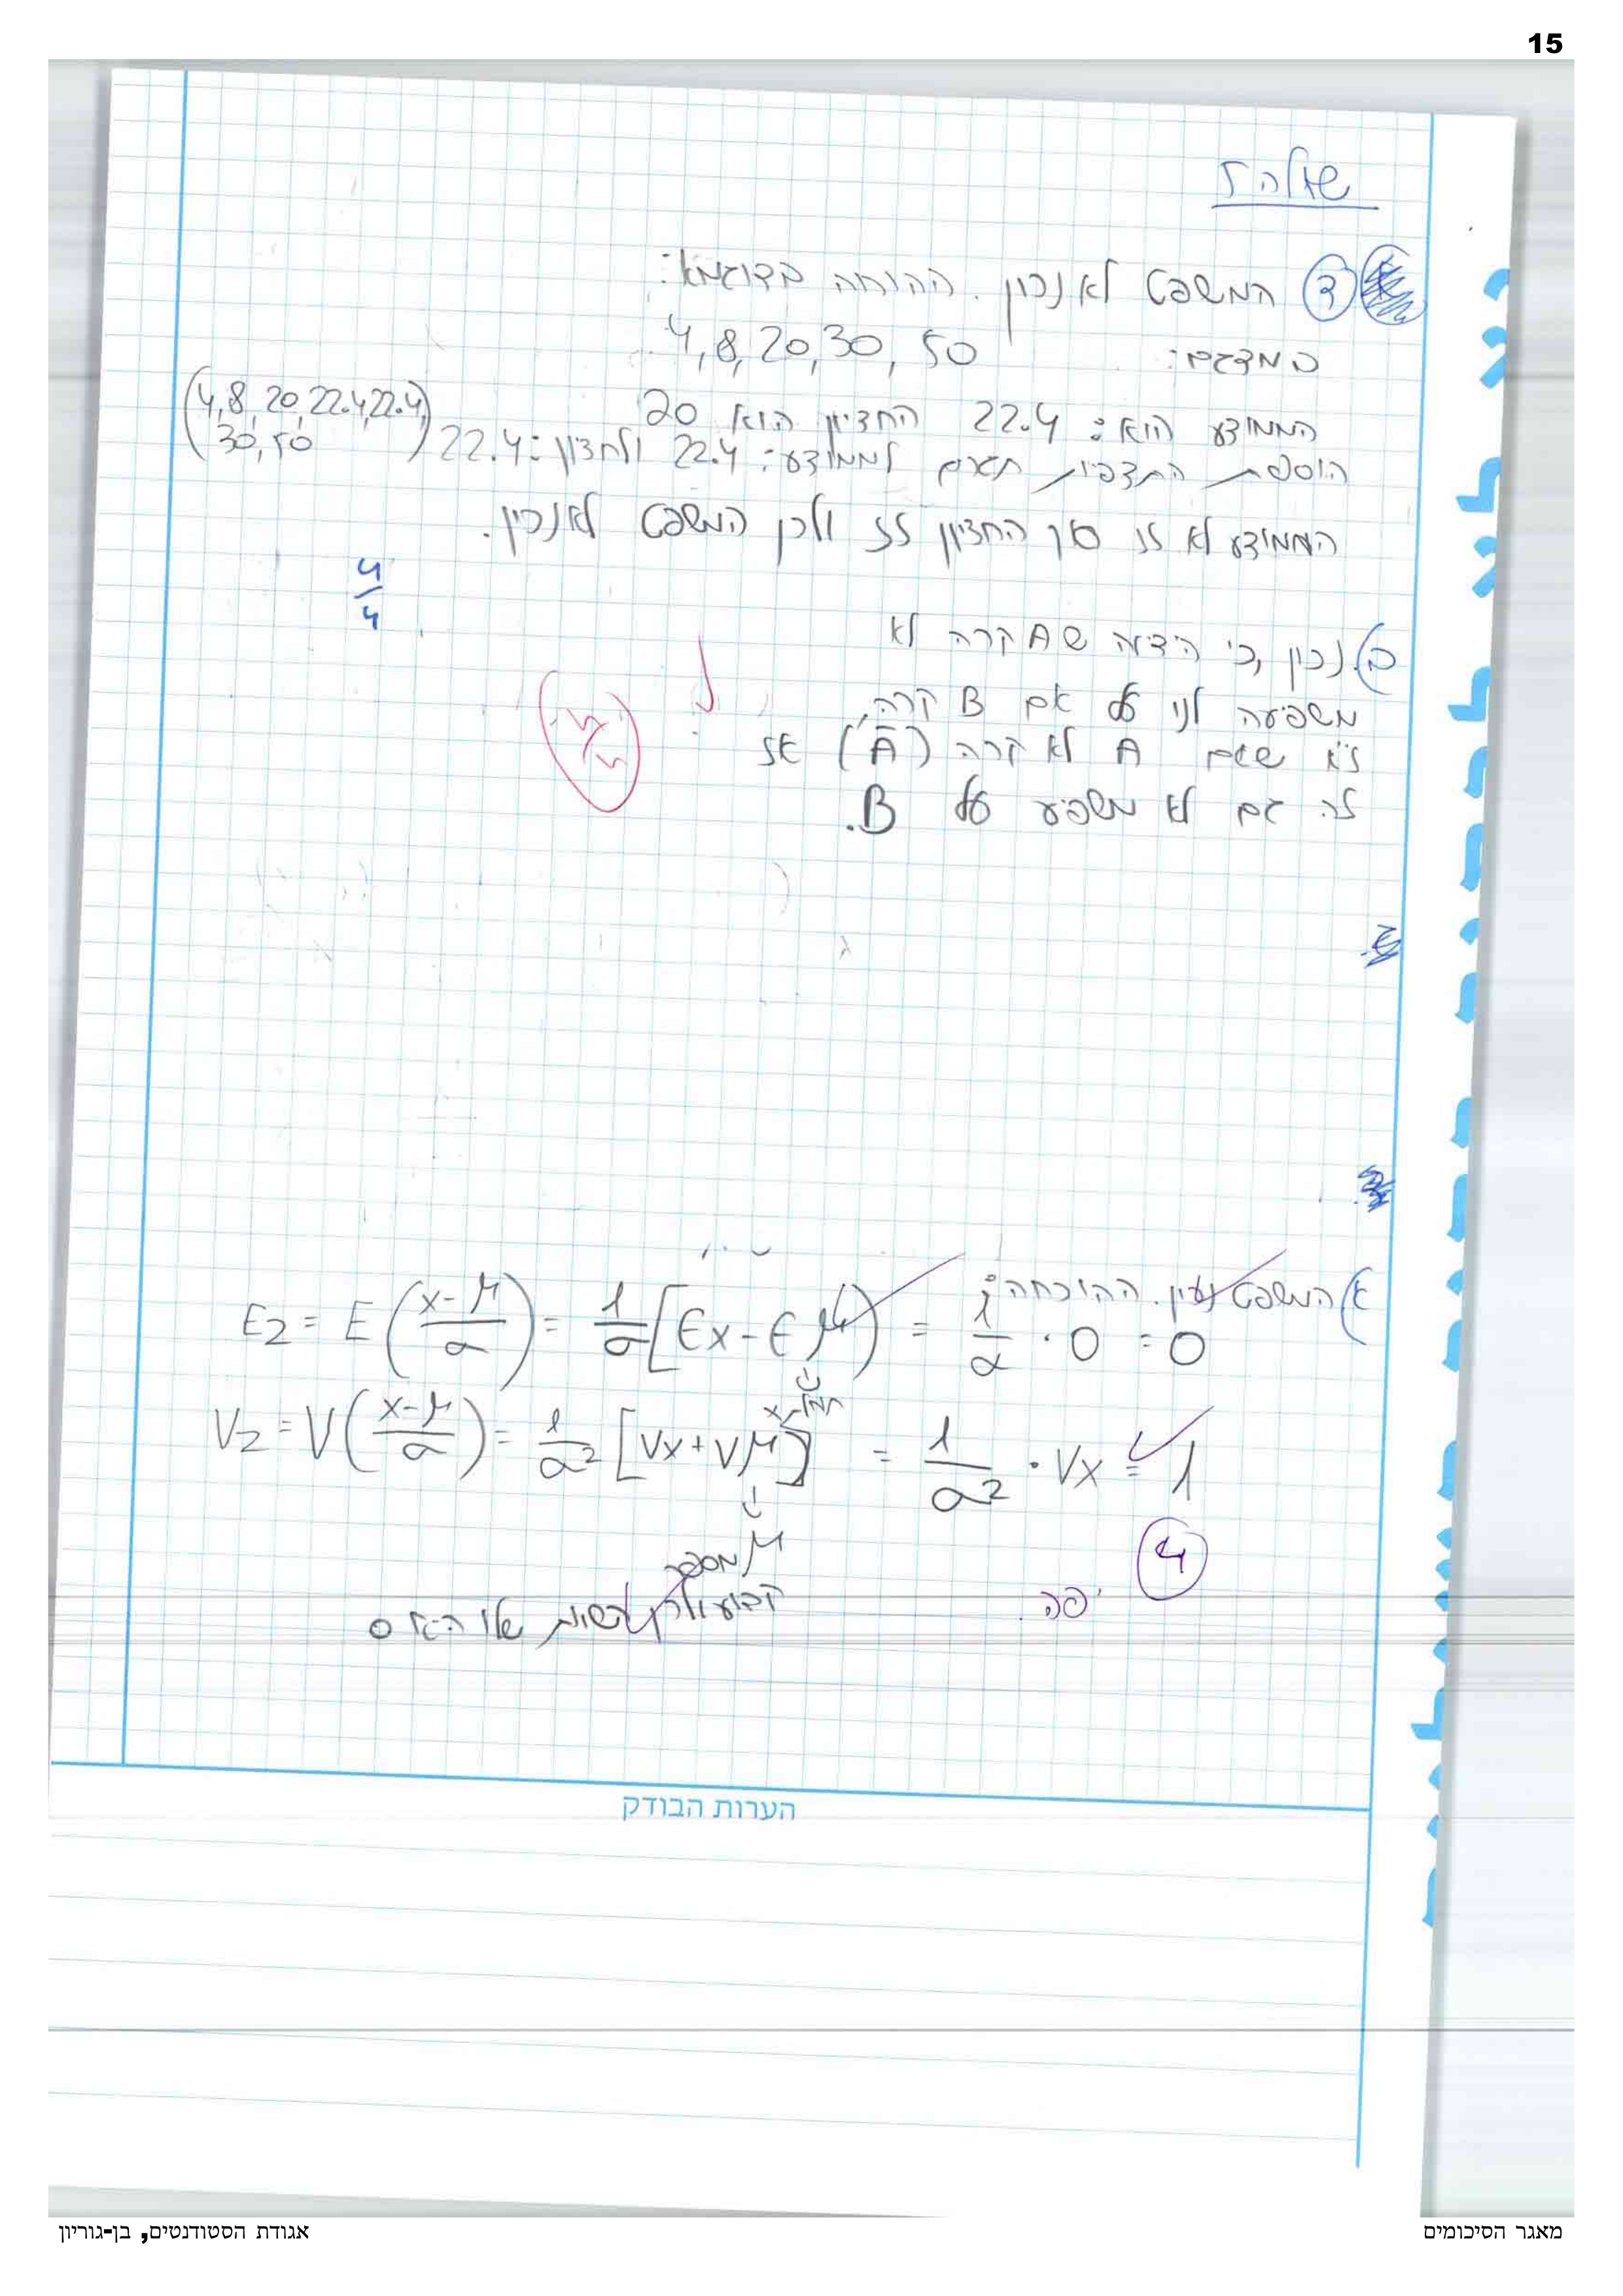 15
שאלה 2
ד המשפט לא נכון. ההוכחה בדוגמא:
במדגם: 4, 8, 20, 30, 50
הממוצע הוא: 22.4 החציון הוא 20
הוספת התצפיות תגרום לממוצע: 22.4 ולחציון: 22.4 (4, 8, 20, 22.4, 22.4, 30, 50)
הממוצע לא זז אך החציון זז ולכן המשפט לא נכון.
4/4
ב) נכון, כי הידיעה ש A קרה לא
משפיעה לנו על אם B קרה,
ז"א שאם A לא קרה (Ā) אז
זה גם לא משפיע על B.
א) המשפט נכון. ההוכחה:
Ez = E(x-μ/σ) = 1/σ [Ex - Eμ] = 1/σ · 0 = 0
Vz = V(x-μ/σ) = 1/σ² [Vx + Vμ] = 1/σ² · Vx = 1
μ מספר
קבוע ולכן השונות שלו היא 0
יפה
4
הערות הבודק
מאגר הסיכומים
אגודת הסטודנטים, בן-גוריון